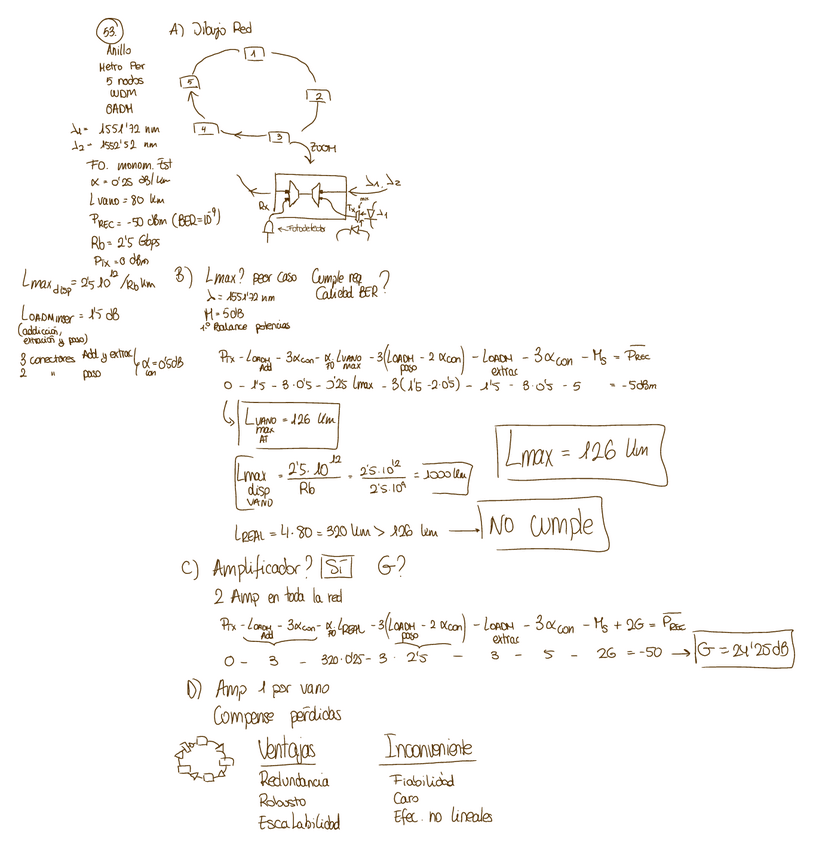 53.
Anillo
Metro Por
5 nodos
WDM
OADM
λ1 = 1551'72 nm
λ2 = 1552'52 nm
FO. monom. Est
α = 0'25 dB/km
Lvano = 80 km
PREC = -50 dBm (BER=10^-9)
Rb = 2'5 Gbps
Ptx = 0 dBm
Lmax disp = 2'5·10^12/Rb km
LOADMinser = 1'5 dB
(addición,
extración y paso)
3 conectores Add y extrac
2 " paso
α con = 0'5dB
A) Dibujo Red
1
2
3
4
5
ZOOM
λ1, λ2
Rx
Tx
λ1
Fotodetector
B) Lmax? peor caso Cumple req Calidad BER?
λ = 1551'72 nm
M = 5dB
1º Balance potencias
Ptx - LOADM Add - 3αcon - αFO·LVANO max - 3(LOADM paso - 2αcon) - LOADM extrac - 3αcon - Ms = PREC
0 - 1'5 - 3·0'5 - 0'25 Lmax - 3(1'5 - 2·0'5) - 1'5 - 3·0'5 - 5 = -5dBm
LVANO max AT = 126 km
Lmax disp VANO = 2'5·10^12/Rb = 2'5·10^12/2'5·10^9 = 1000 km
Lmax = 126 km
LREAL = 4·80 = 320 km > 126 km → NO cumple
C) Amplificador? Sí G?
2 Amp en toda la red
Ptx - LOADM Add - 3αcon - αFO·LREAL - 3(LOADM paso - 2αcon) - LOADM extrac - 3αcon - Ms + 2G = PREC
0 - 3 - 320·0'25 - 3·2'5 - 3 - 5 - 2G = -50 → G = 24'25dB
D) Amp 1 por vano
Compense perdidas
Ventajas
Redundancia
Robusto
Escalabilidad
Inconveniente
Fiabilidad
Caro
Efec. no lineales